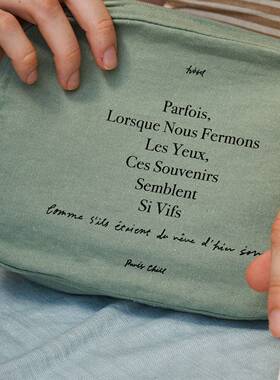 Parfois,
Lorsque Nous Fermons
Les Yeux,
Ces Souvenirs
Semblent
Si Vifs
Comme s'ils étaient du rêve d'hier
Paris Chill